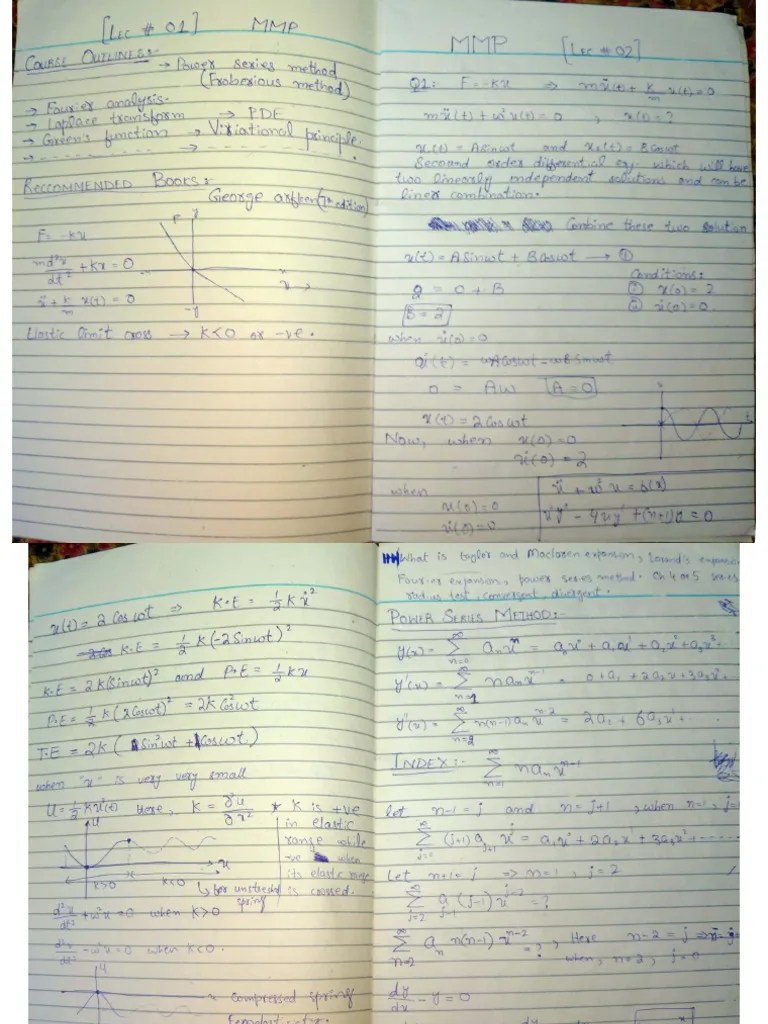 [Lec # 01] MMP
COURSE OUTLINES:-
→ Power series method
(Froberious method)
→ Fourier analysis.
→ Laplace transform → PDE
→ Green's function → Viriational principle.
RECCOMMENDED BOOKS:-
George arfken (7th edition)
F = -kx
F
md²x/dt² + kx = 0
ẍ + k/m x(t) = 0
Elastic limit cross → K<0 or -ve.
MMP [Lec # 02]
Q1:- F = -kx ⇒ mẍ(t) + k/m x(t) = 0
mẍ(t) + ω²x(t) = 0 , x(t) = ?
x₁(t) = A sinωt and x₂(t) = B cosωt
Secound order differential eq. which will have
two linearly independent solutions and can be
liner combination.
Combine these two solution
x(t) = A sinωt + B cosωt → ①
Conditions:
① x(0) = 2
② ẋ(0) = 0
2 = 0 + B
B = 2
when ẋ(0) = 0
ẋ(t) = ωA cosωt - ωB sinωt
0 = Aω A = 0
x(t) = 2 Cos ωt
Now, when x(0) = 0
ẋ(0) = 2
when
x(0) = 0
ẋ(0) = 0
x(t) = 2 Cos ωt ⇒ K.E = 1/2 k ẋ²
K.E = 1/2 k (-2 Sin ωt)²
K.E = 2k (Sin ωt)² and P.E = 1/2 kx
P.E = 1/2 k (2 Cos ωt)² = 2k Cos²ωt
T.E = 2k ( Sin²ωt + Cos ωt)
when "x" is very very small
U = 1/2 k x²(t) Here, K = ∂²u/∂x² * K is +ve
in elastic
range while
-ve when
its elastic range
is crossed.
U
x
k>0 k<0
for unstretch
spring
d²x/dt² + ω²x = 0 when K>0
d²x/dt² - ω²x = 0 when K<0.
U
Compressed spring
What is taylor and Maclaren expansion,
Fourier expansion, power series method. Ch 4 or 5 series
radius test, convergent divergent.
POWER SERIES METHOD:-
y(x) = ∑ n=0 ∞ aₙxⁿ = a₀x⁰ + a₁x¹ + a₂x² + a₃x³
y'(x) = ∑ n=1 ∞ n aₙxⁿ⁻¹ = 0 + a₁ + 2a₂x + 3a₃x²
y''(x) = ∑ n=2 ∞ n(n-1)aₙxⁿ⁻² = 2a₂ + 6a₃x +
INDEX:- ∑ n=1 ∞ n aₙ xⁿ⁻¹
let n-1 = j and n = j+1 , when n=1, j=
∑ j=0 ∞ (j+1) aⱼ₊₁ xʲ = a₁x⁰ + 2a₂x¹ + 3a₃x² + ------
Let n+1 = j ⇒ n=1 , j=2
∑ j=2 ∞ aⱼ₋₁ (j-1) xʲ⁻² = ?
∑ n=2 ∞ aₙ n(n-1) xⁿ⁻² = ? , Here n-2 = j
when, n=2, j=0
dy/dx - y = 0